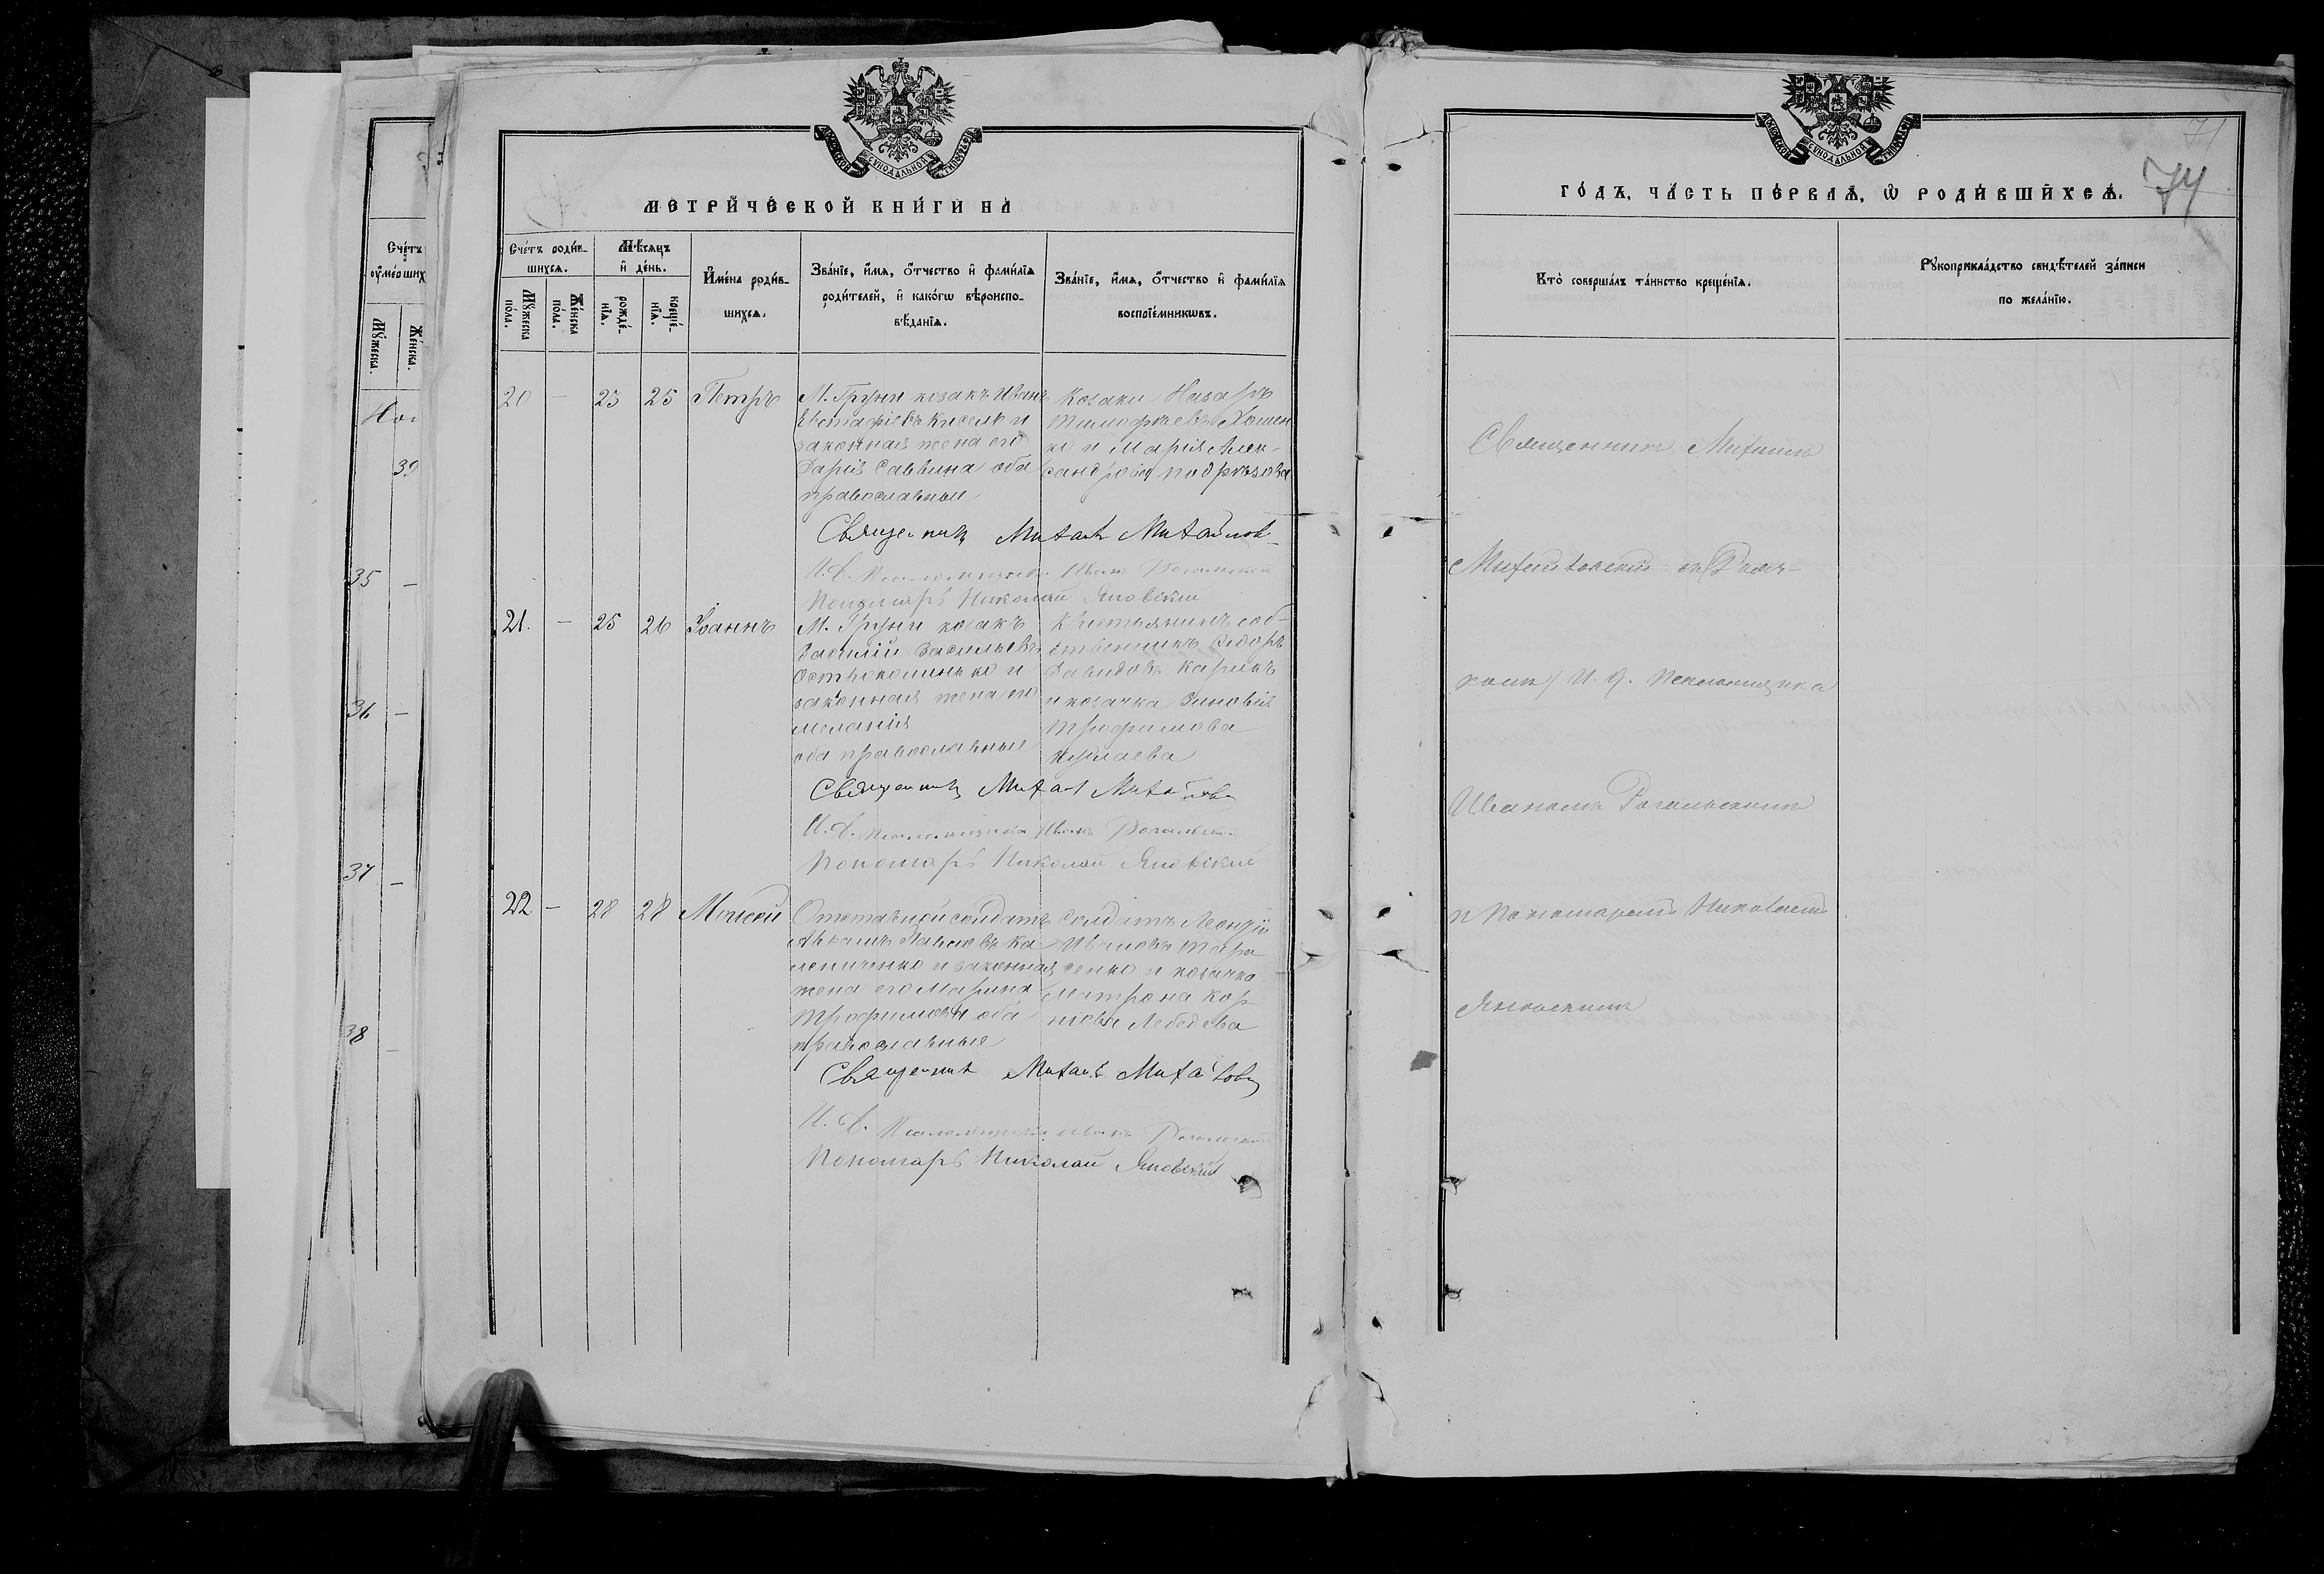 МЕТРИЧЕСКОЙ КНИГИ НА
Счетъ родив-
шихся.
Мужеска
пола.
Женска
пола.
Мѣсяцъ
и день.
рожде-
нія.
креще-
нія.
Имена родив-
шихся.
Званіе, имя, отчество и фамилія
родителей, и какогѡ вѣроиспо-
вѣданія.
Званіе, имя, отчество и фамилія
воспріемникѡвъ.
20 — 23 25 Петръ
М. Груни козакъ Иванъ
Евстафіевъ Кисель и
законная жена его
Дарія Саввина оба
православные
Козаки Назаръ
Тимофѣевъ Хомен
ко и Марія Алек-
сандрова Подрѣзова
Священникъ Михаилъ Михайловъ
И. Д. Псаломщика Иванъ Рогальскій
Пономарь Николай Яновскій
21. — 25 26 Іоаннъ
М. Груни козакъ
Василій Васильевъ
и
законная жена его
Меланія
оба православные
Крестьянинъ соб-
ственникъ Ѳедоръ
Давидовъ Карикъ
и козачка Зиновія
Трофимова
Священникъ Михаил
И. Д. Псаломщика Иванъ Рогальскій
Пономарь Николай Яновскій
22 — 28 28 Моисей
Отставной солдатъ
Авраамъ Павловъ Ка
и законная
жена его Марина
Трофимова оба
православные
Солдатъ Леонтій
Ивановъ Тара
сенко и козачка
Матрона Кор-
ніева Лебедева
Священникъ Михаилъ
И. Д. Псаломщика Иванъ Рогальскій
Пономарь Николай Яновскій
Счетъ
оумерших
Мужеска.
Женска.
39
35 —
36 —
37 —
38 —
71
74
ГОДЪ, ЧАСТЬ ПЕРВАЯ, Ѡ РОДИВШИХСЯ.
Кто совершалъ таинство крещенія.
Рукоприкладство свидѣтелей записи
по желанію.
Священникъ Михаилъ
Михайловскій съ
И. д. Псаломщика
Иваномъ Рогальскимъ
и Пономаремъ Николаемъ
Яновскимъ